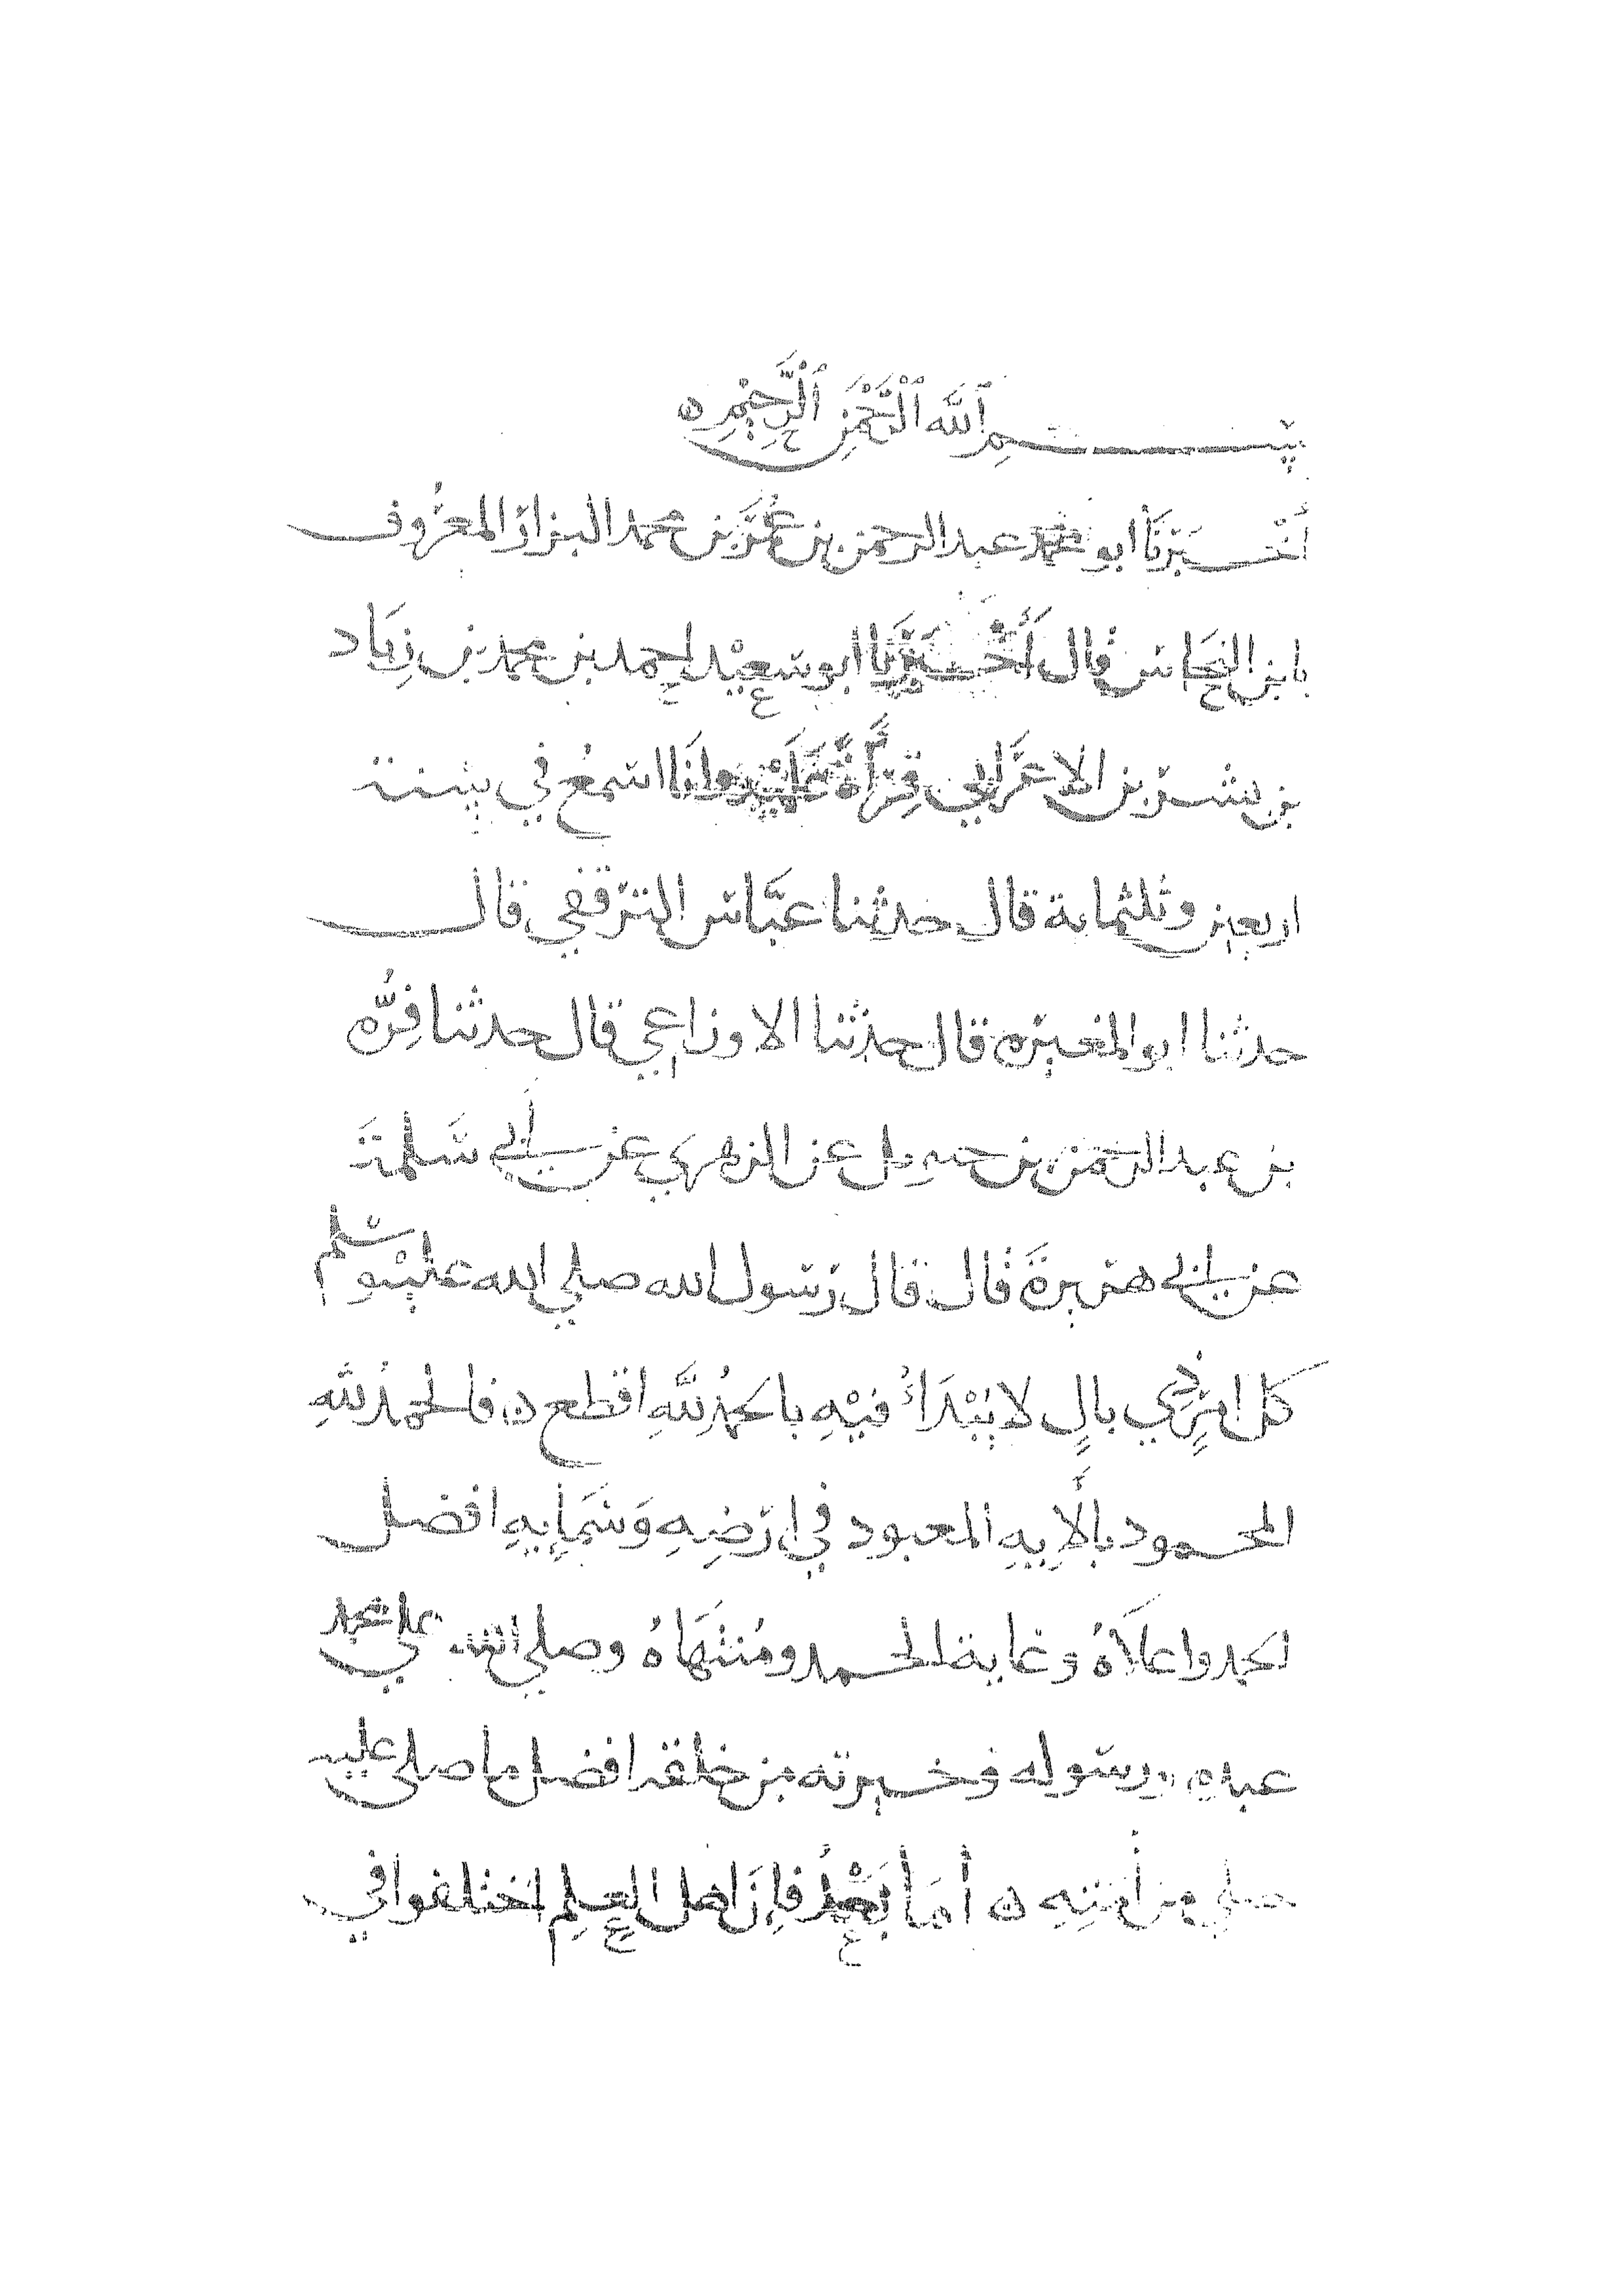 بِسْمِ ٱللَّهِ ٱلرَّحْمَنِ ٱلرَّحِيْمِ ه
أَخْبَرَنَا ابو محمد عبد الرحمن بن عُمَر بن محمد البزاز المعرُوف
بابن النحَاس قال أَخْبَرَنَا ابو سعِيْد احمد بن محمد بن زِيَاد
بن بشر بن الاعرَابي قِرَأَةً عَلَيْهِ وانَا اسمعُ في سنة
اربعين وثلثماية قال حدثنا عبَّاس الترقفي قال
حدثنا ابو المغيره قال حدثنا الاوزاعي قال حدثنا قُرّه
بن عبد الرحمن بن حيويل عن الزهري عن أبي سَلمَة
عن أبي هريرةَ قال قال رسول الله صلي الله عليْه وسلم
كل امرٍ ذي بالٍ لا يُبْدَأُ فيْهِ بالحمدُ للَّهِ اقطع ه فالحمدُ للَّهِ
المحمود بآلايِهِ المعبود في ارضِهِ وَسَمَايِهِ افضل
الحمد واعلاَهُ وغاية الحمد ومُنتهَاهُ وصلي الله علي محمد
عبده ورسوله وخيرته من خلقه افضل ما صلى عليه
صلي من أمتِهِ ه أمَا بَعْدُ فإن اهل العِلم اختلفوا في